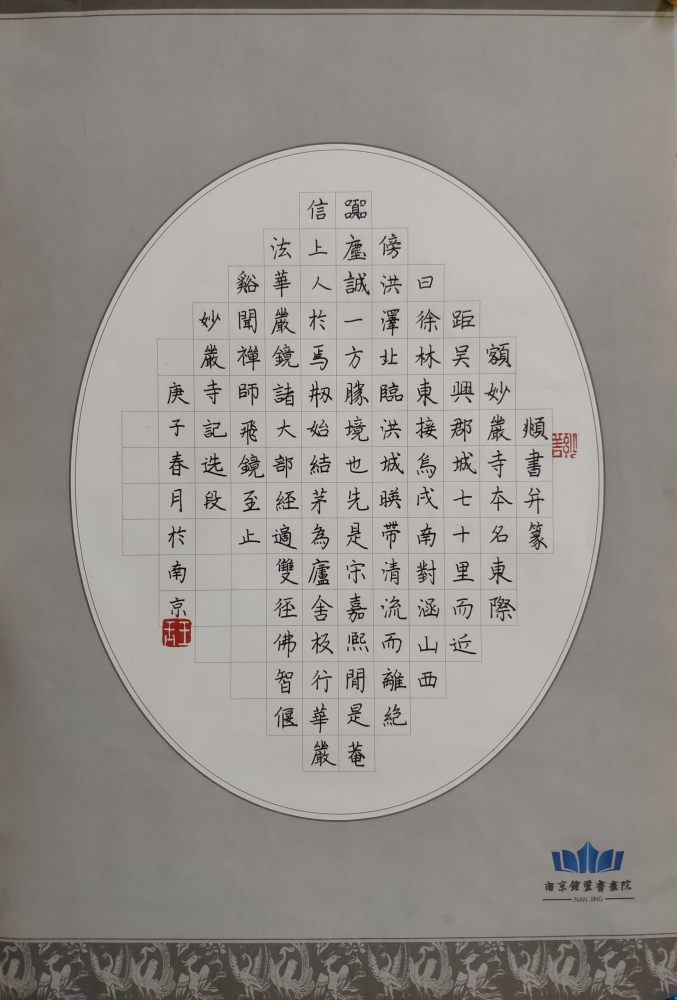 頫書并篆
額妙嚴寺本名東際
距吳興郡城七十里而近
曰徐林東接烏戍南對涵山西
傍洪澤北臨洪城暎帶清流而離絕
嚻塵誠一方勝境也先是宋嘉熙間是菴
信上人於焉剏始結茅為廬舍板行華嚴
法華嚴鏡諸大部經適雙徑佛智偃
谿聞禪師飛鏡至止
妙嚴寺記选段
庚子春月於南京
南京書畫院
NAN JING